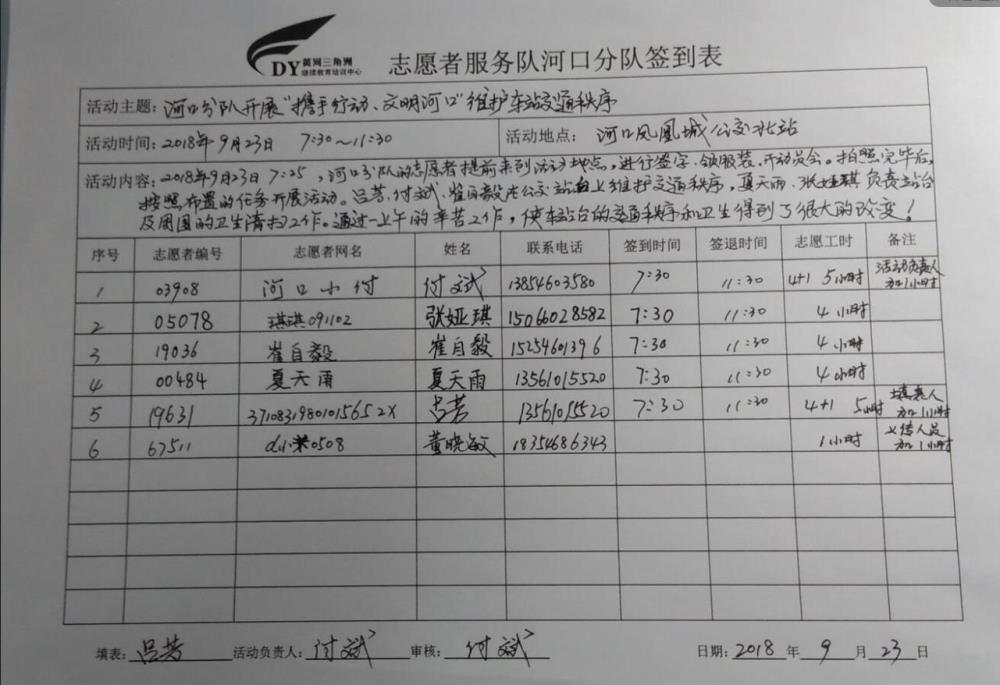 DY 黄河三角洲
继续教育培训中心
志愿者服务队河口分队签到表
活动主题: 河口分队开展“携手行动、文明河口”维护车站交通秩序
活动时间: 2018年9月23日 7:30～11:30 活动地点: 河口凤凰城公交北站
活动内容: 2018年9月23日 7:25,河口分队的志愿者提前来到活动地点,进行签字、领服装、开动员会。拍照完毕后,
按照布置的任务开展活动。吕芳、付斌、崔自毅在公交站台上维护交通秩序,夏天雨、张娅琪负责站台
及周围的卫生清扫工作。通过一上午的辛苦工作,使车站台的交通秩序和卫生得到了很大的改变!
序号 志愿者编号 志愿者网名 姓名 联系电话 签到时间 签退时间 志愿工时 备注
1 03908 河口小付 付斌 13854603580 7:30 11:30 4+1 5小时 活动负责人加1小时
2 05078 琪琪091102 张娅琪 15066028582 7:30 11:30 4小时
3 19036 崔自毅 崔自毅 15254601396 7:30 11:30 4小时
4 00484 夏天雨 夏天雨 13561015520 7:30 11:30 4小时
5 19631 37108319801015652X 吕芳 13561015520 7:30 11:30 4+1 5小时 填表人加1小时
6 67511 dd小米0508 董晓敏 18354686343 1小时 上传人员加1小时
填表: 吕芳 活动负责人: 付斌 审核: 付斌 日期: 2018 年 9 月 23 日